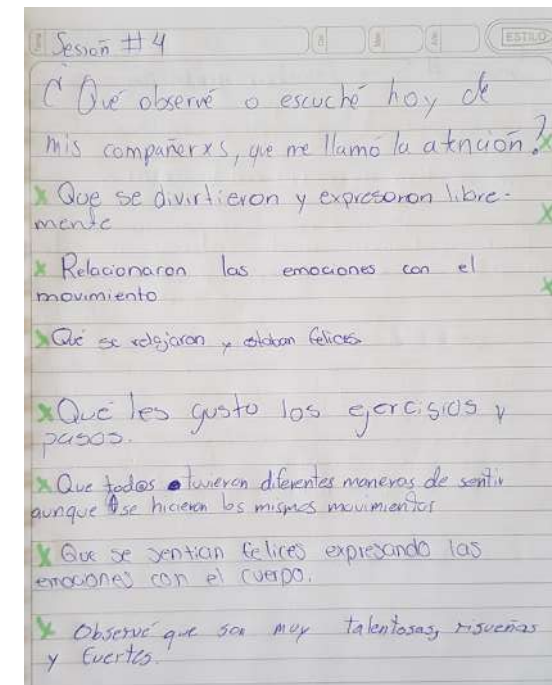 ESTILO
Sesión #4
¿Qué observé o escuché hoy de
mis compañerxs, que me llamó la atención?
x Que se divirtieron y expresaron libre-
mente
x Relacionaron las emociones con el
movimiento
x Que se relajaron y estaban felices
x Que les gusto los ejercisios y
pasos.
x Que todas tuvieron diferentes maneras de sentir
aunque se hicieron los mismos movimientos
x Que se sentian felices expresando las
emociones con el cuerpo.
x Observé que son muy talentosas, risueñas
y fuertes.